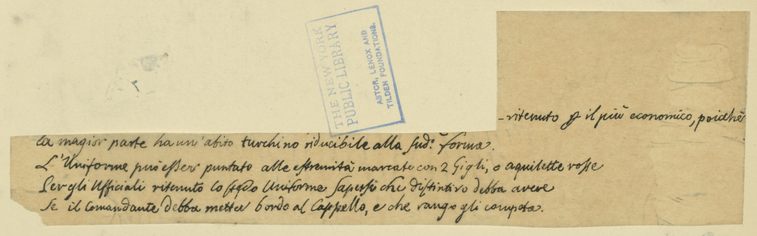 THE NEW YORK
PUBLIC LIBRARY
ASTOR, LENOX AND
TILDEN FOUNDATIONS.
ritenuto p il più economico, poichè
la magior parte ha un'abito turchino riducibile alla sud.ª forma.
L'Uniforme può esser puntato alle estremità marcato con 2 Gigli, o aquilette rosse
Per gli Ufficiali ritenuto lo stesso Uniforme sapersi che distintivo debba avere
Se il Comandante debba metter bordo al Cappello, e che rango gli competa.